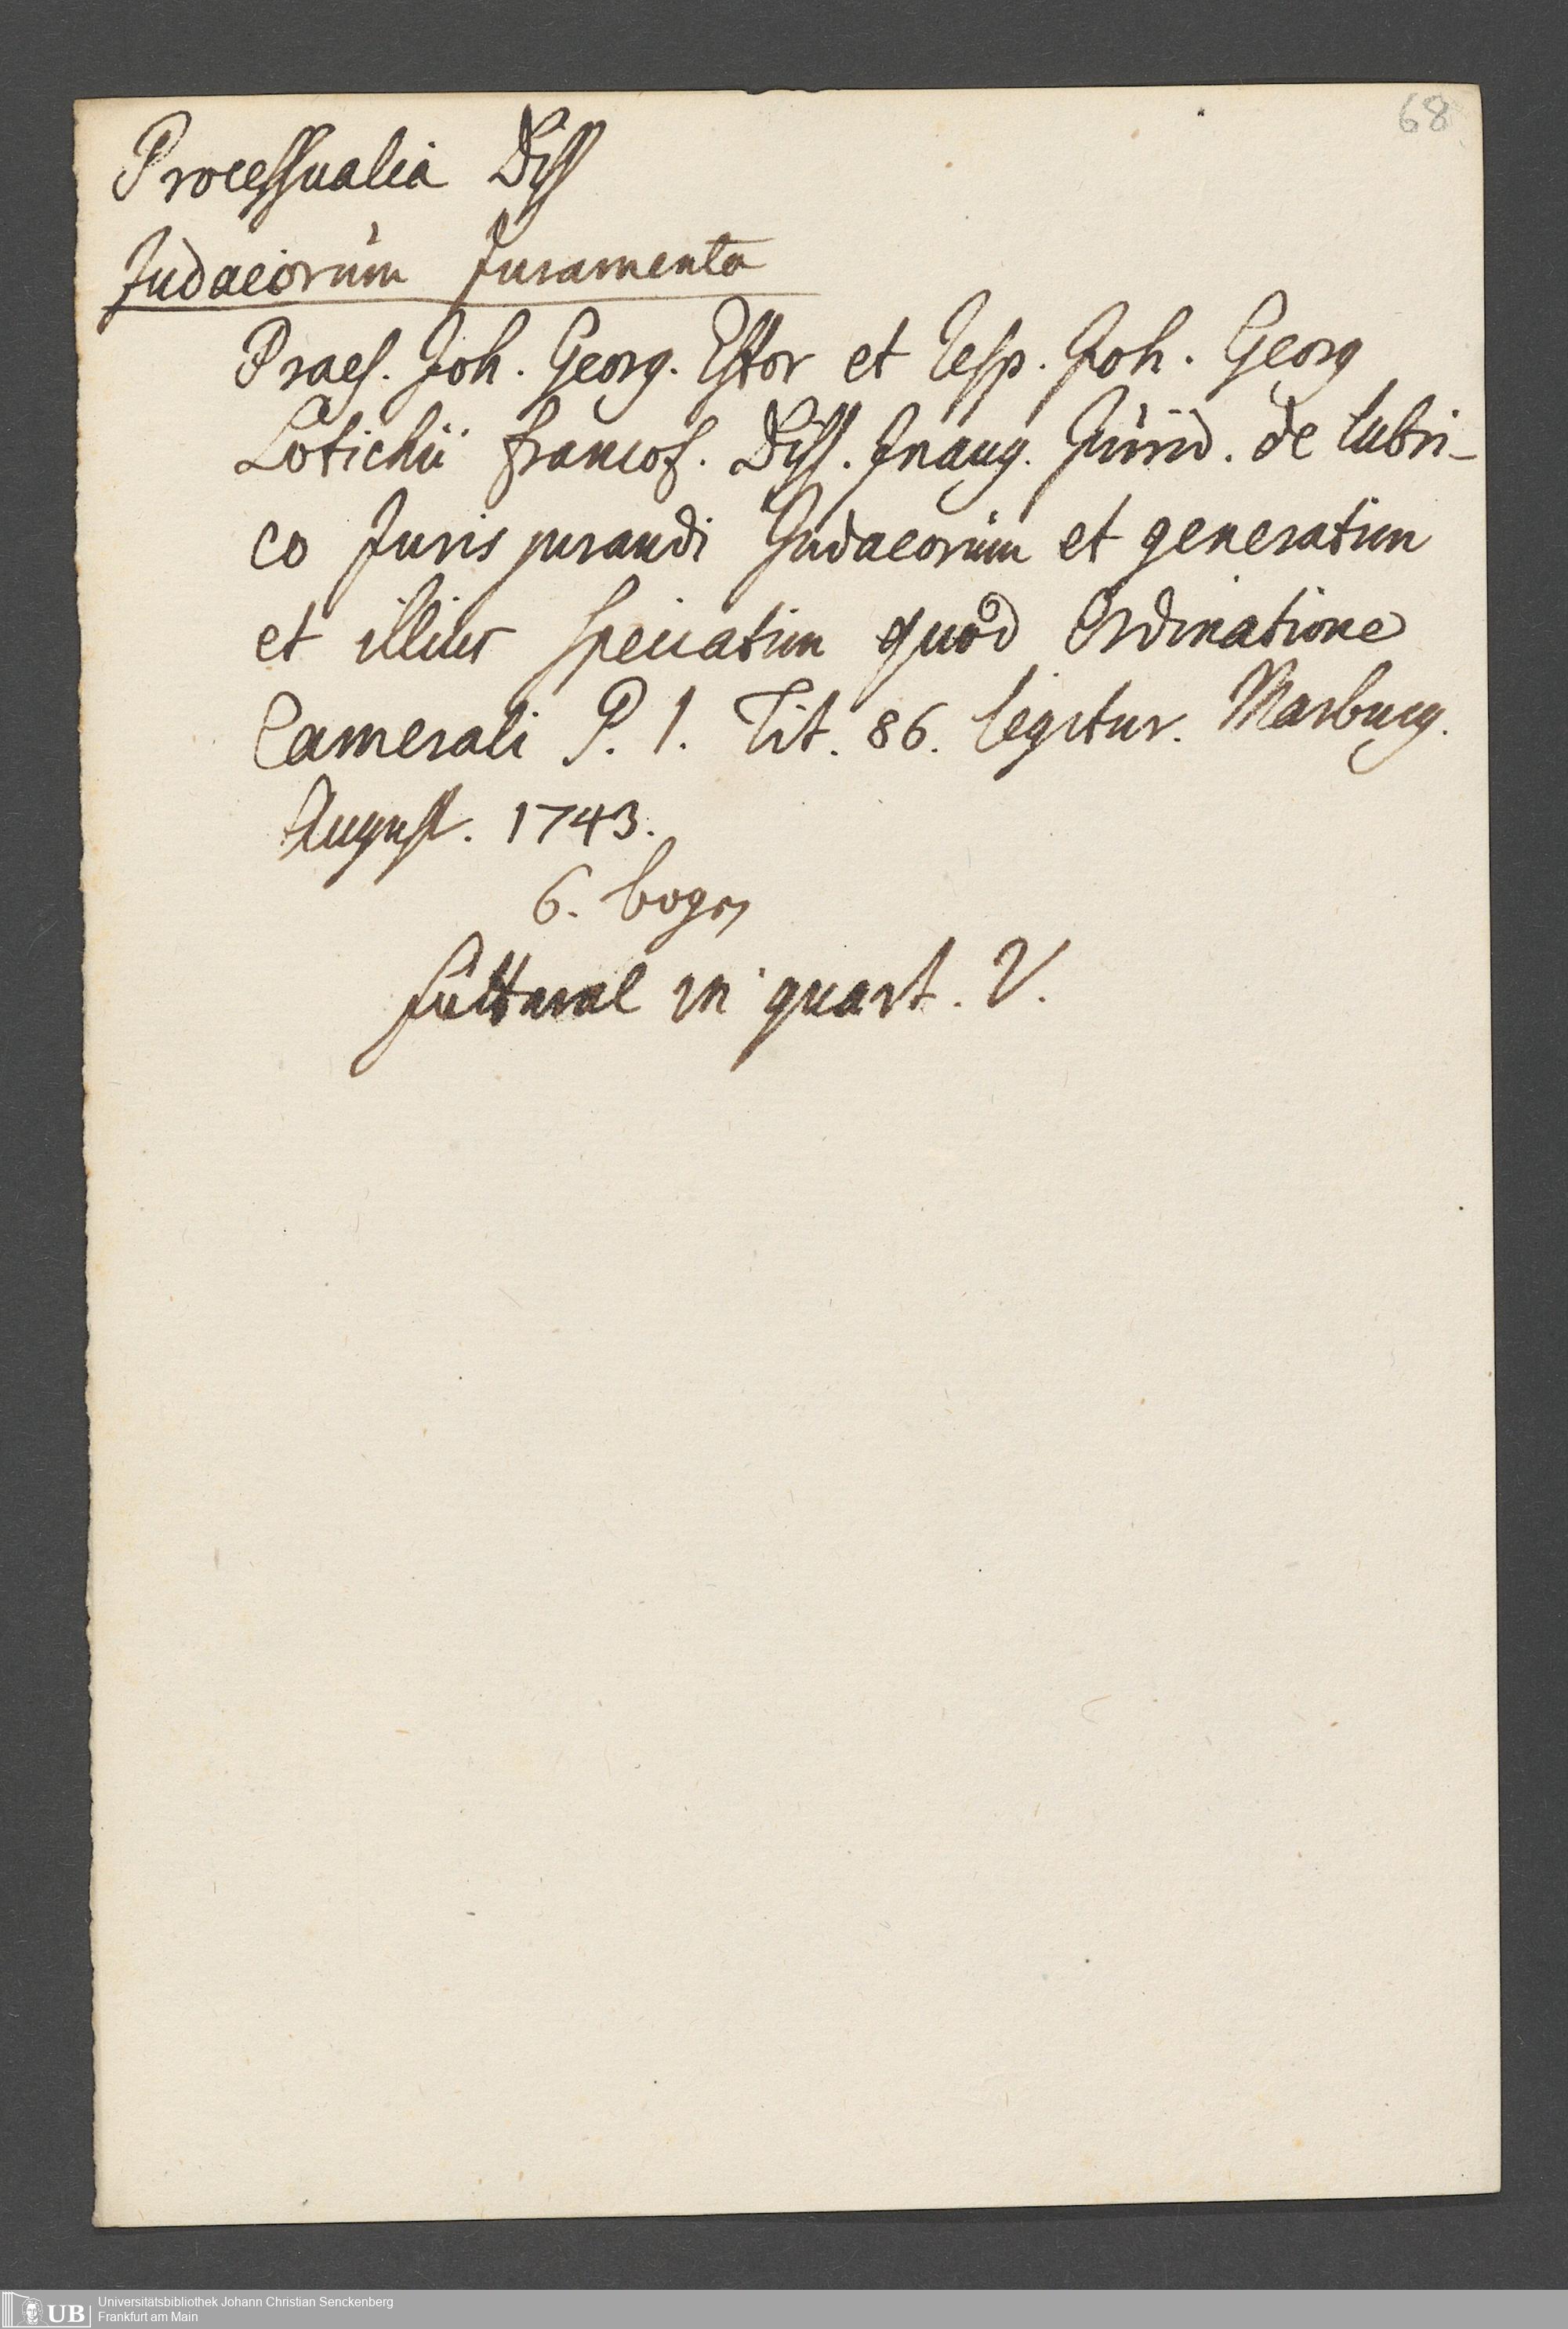 68
Processualia Diss
Judaeorum Juramenta
Praes. Joh. Georg. Estor et Resp. Joh. Georg
Lotichii francof. Diss. Inaug. Jurid. de lubri-
co Juris jurandi Judaeorum et generatim
et illius speciatim quod Ordinatione
Camerali P. 1. Tit. 86. legitur. Marburg.
August. 1743.
6. bogen
futteral in quart. V.
UB Universitätsbibliothek Johann Christian Senckenberg
Frankfurt am Main